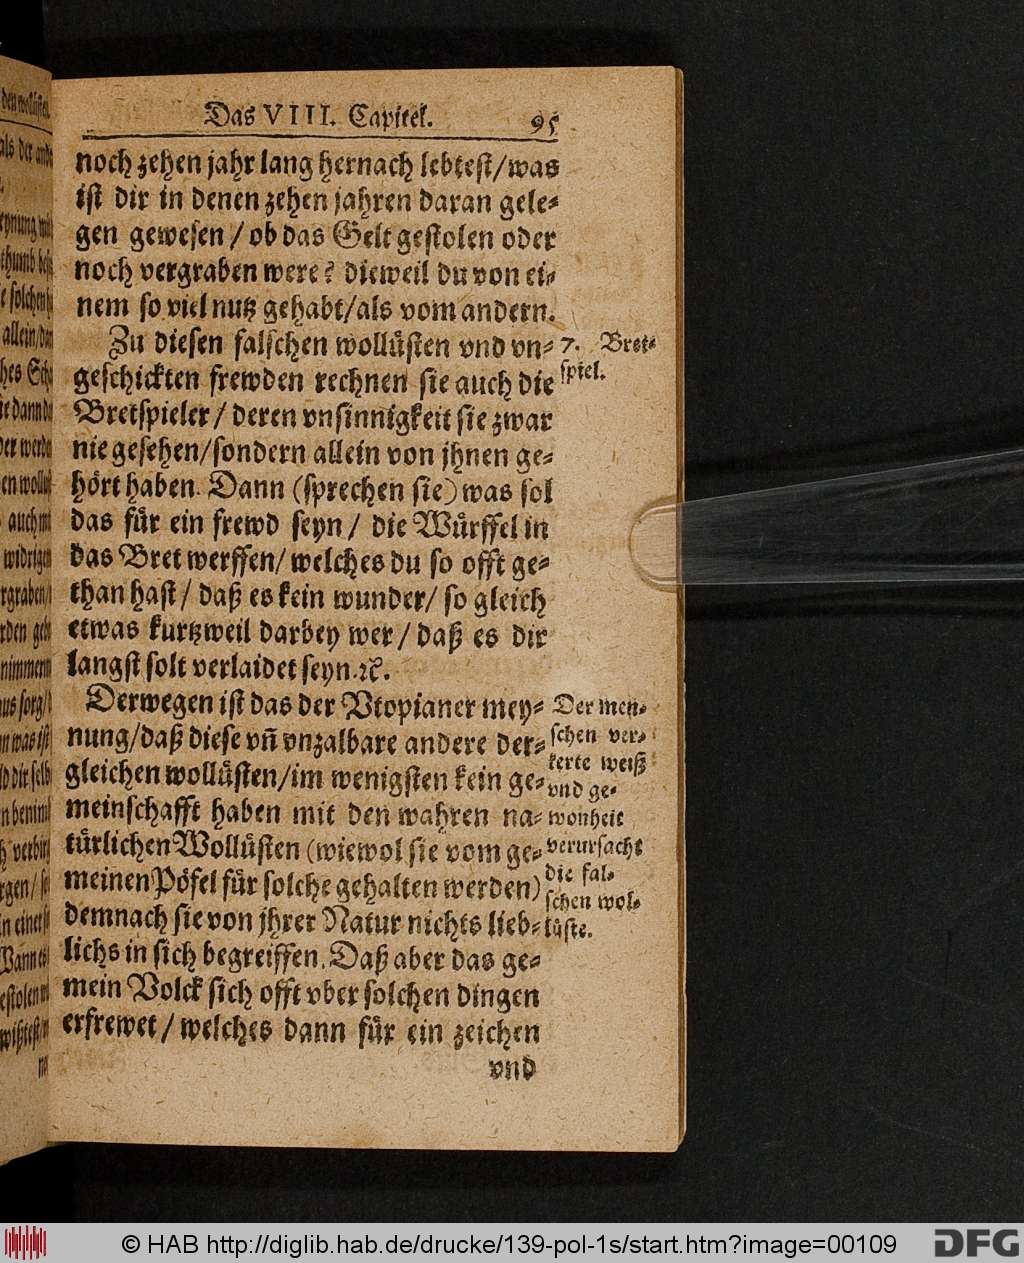 Das VIII. Capitel. 95
noch zehen jahr lang hernach lebtest/was
ist dir in denen zehen jahren daran gele⸗
gen gewesen / ob das Gelt gestolen oder
noch vergraben were? dieweil du von ei⸗
nem so viel nutz gehabt/als vom andern.
Zu diesen falschen wollüsten vnd vn⸗
geschickten frewden rechnen sie auch die
Bretspieler / deren vnsinnigkeit sie zwar
nie gesehen/sondern allein von jhnen ge⸗
hört haben. Dann (sprechen sie) was sol
das für ein frewd seyn / die Würffel in
das Bret werffen/ welches du so offt ge⸗
than hast / daß es kein wunder/ so gleich
etwas kurtzweil darbey wer / daß es dir
langst solt verlaidet seyn.ꝛc.
7. Bret⸗
spiel.
Derwegen ist das der Vtopianer mey⸗
nung/daß diese vñ vnzalbare andere der⸗
gleichen wollüsten/im wenigsten kein ge⸗
meinschafft haben mit den wahren na⸗
türlichen Wollüsten (wiewol sie vom ge⸗
meinen Pöfel für solche gehalten werden)
demnach sie von jhrer Natur nichts lieb⸗
lichs in sich begreiffen. Daß aber das ge⸗
mein Volck sich offt vber solchen dingen
erfrewet / welches dann für ein zeichen
vnd
Der men⸗
schen ver⸗
kerte weiß
vnd ge⸗
wonheit
verursacht
die fal⸗
schen wol⸗
lüste.
© HAB http://diglib.hab.de/drucke/139-pol-1s/start.htm?image=00109
DFG